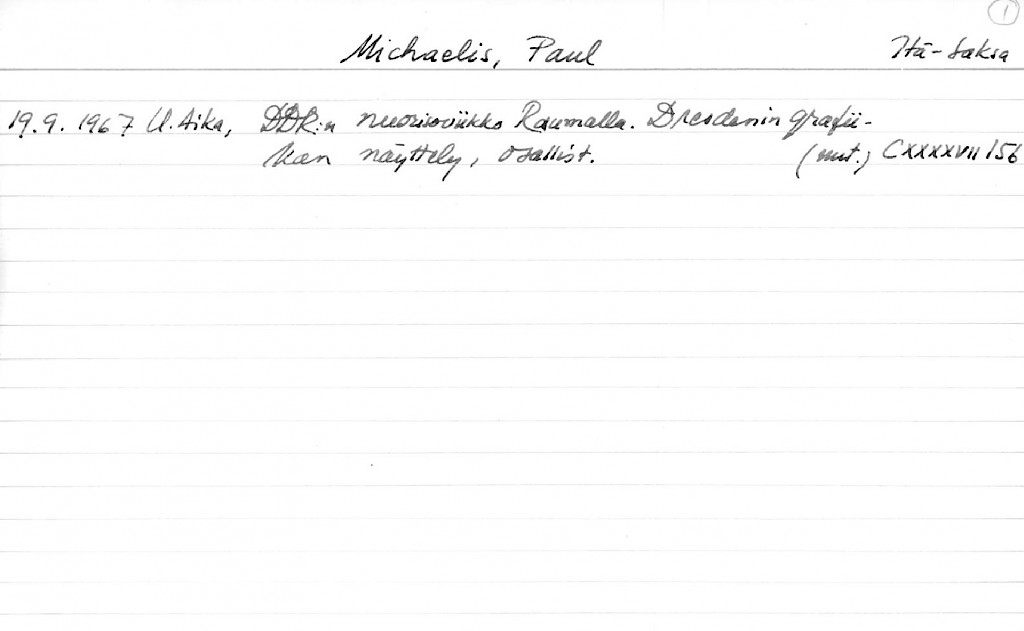 1
Michaelis, Paul Itä-Saksa
19.9.1967 U.Aika, DDR:n nuorisoviikko Raumalla. Dresdenin grafii-
kan näyttely, osallist. (mut.) CXXXXVII/56